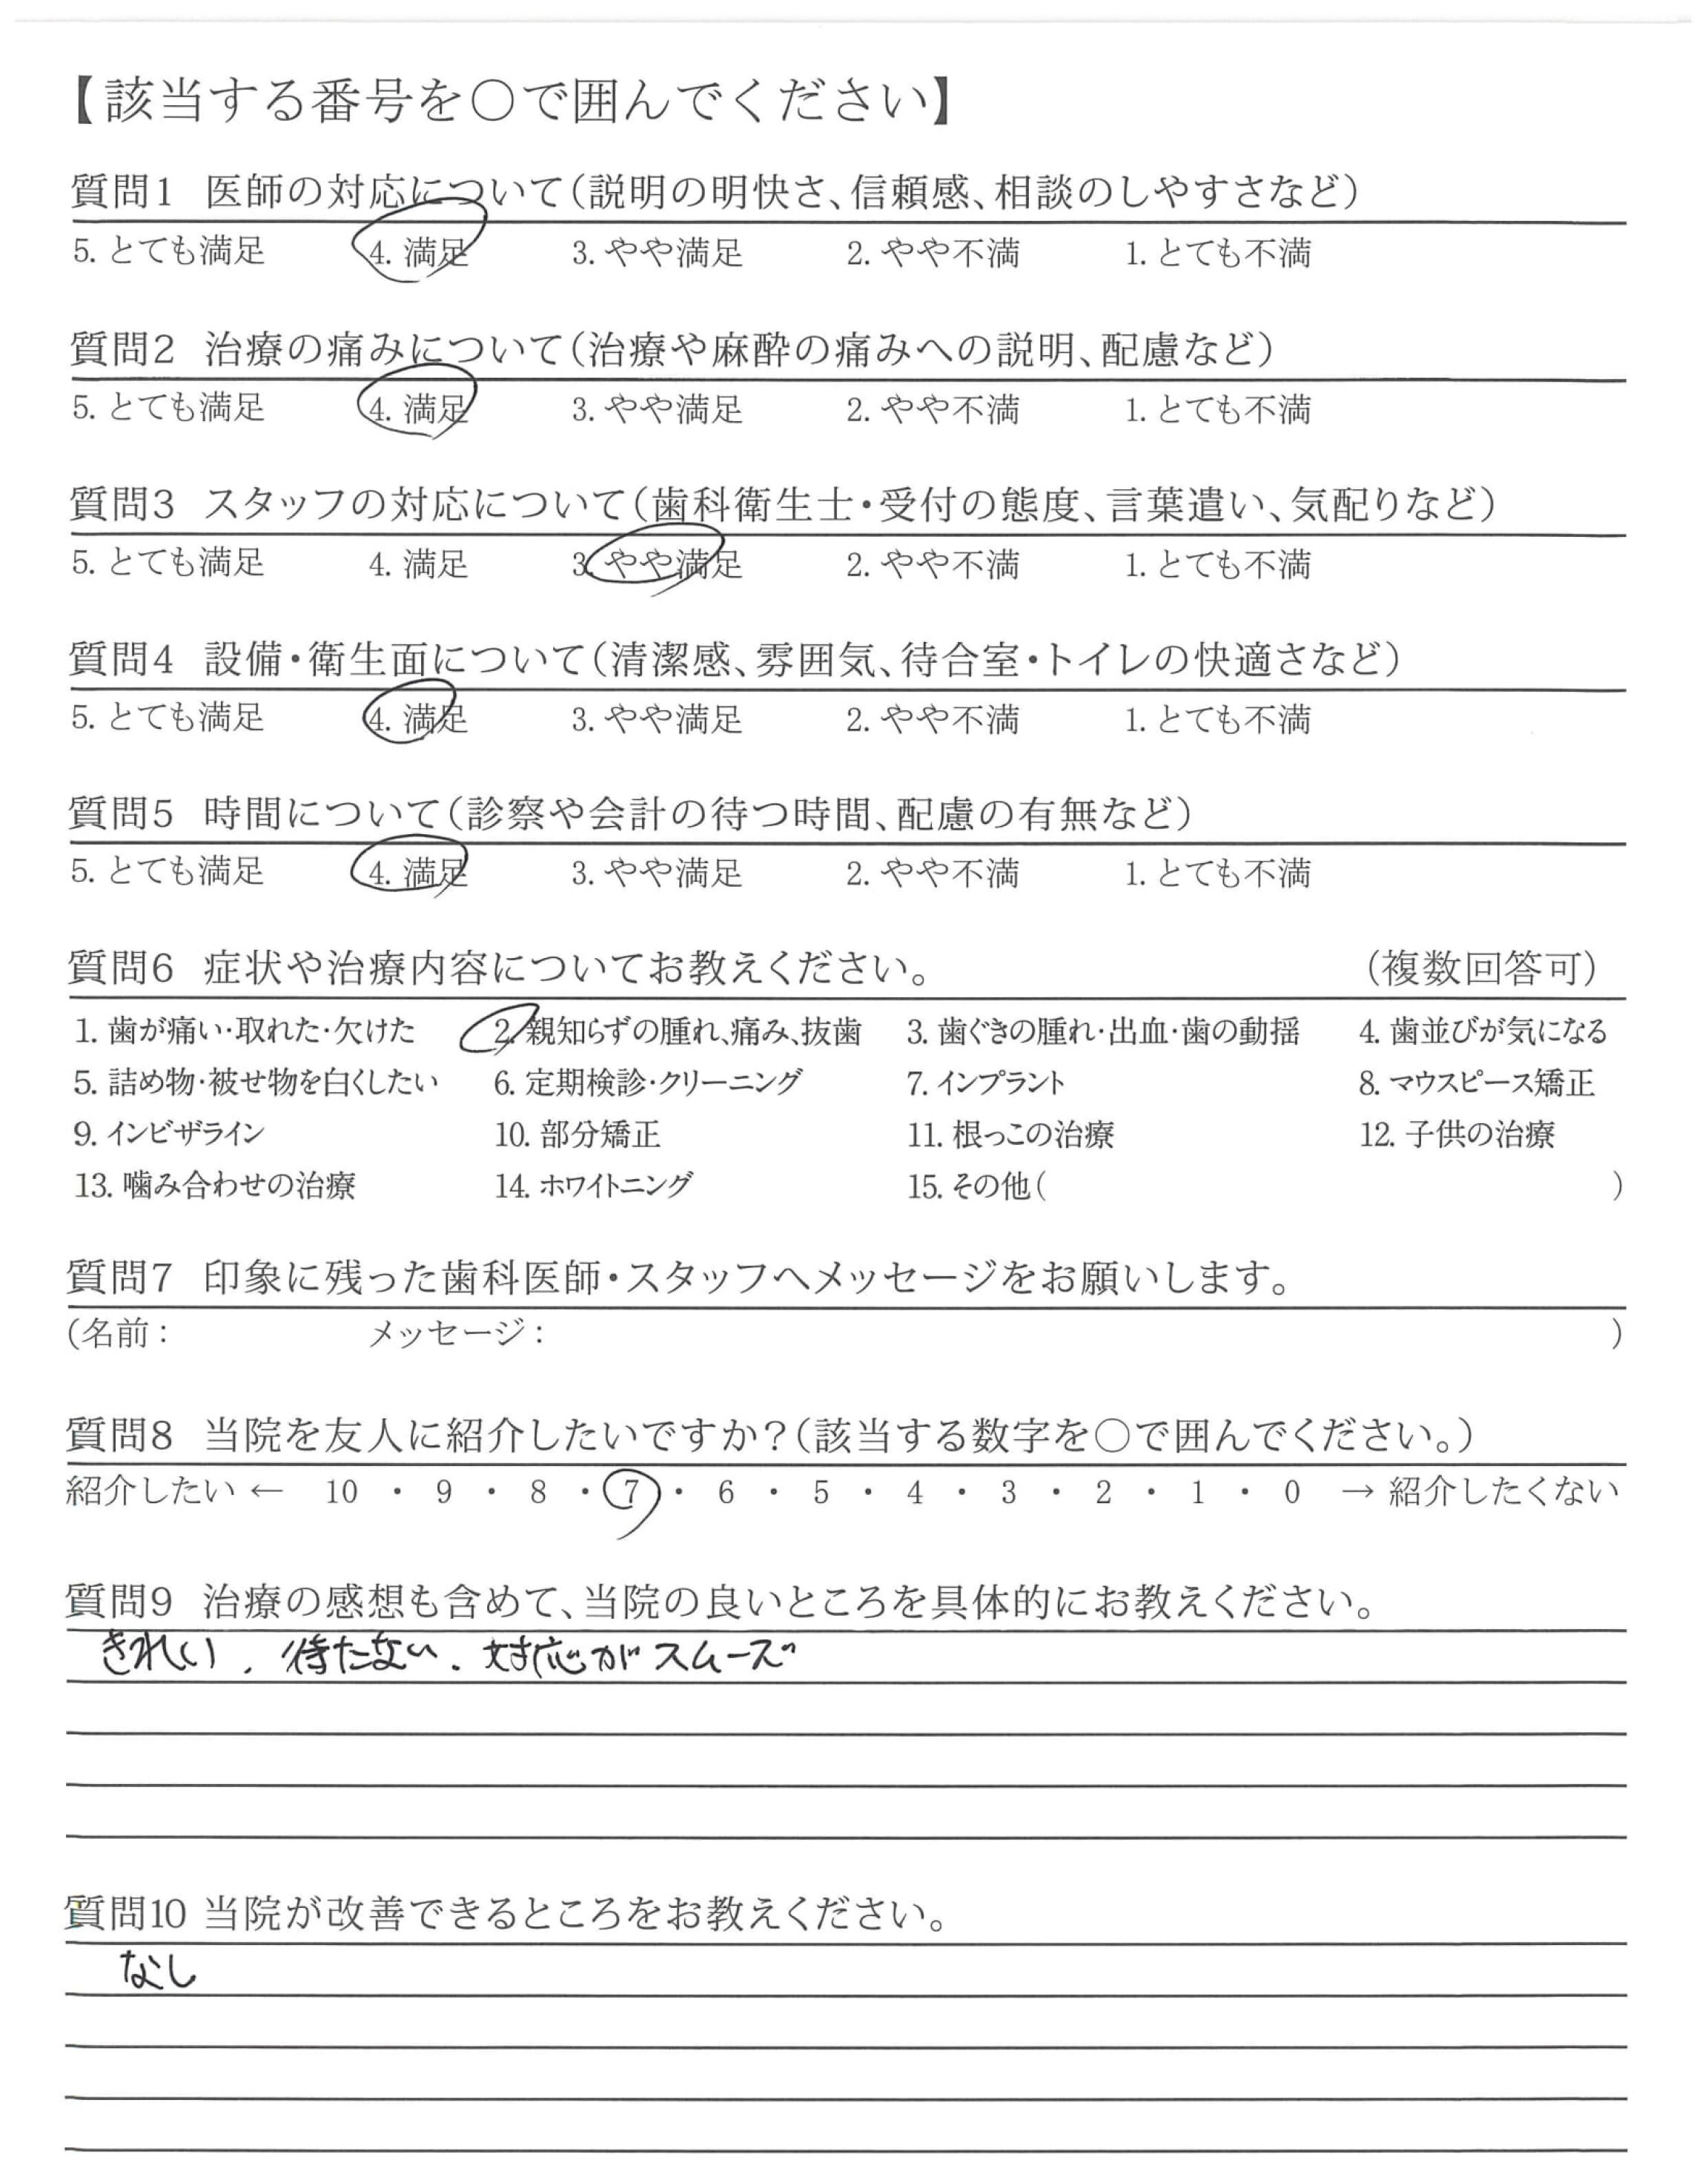 【該当する番号を○で囲んでください】
質問1 医師の対応について（説明の明快さ、信頼感、相談のしやすさなど）
5. とても満足 4. 満足 3. やや満足 2. やや不満 1. とても不満
質問2 治療の痛みについて（治療や麻酔の痛みへの説明、配慮など）
5. とても満足 4. 満足 3. やや満足 2. やや不満 1. とても不満
質問3 スタッフの対応について（歯科衛生士・受付の態度、言葉遣い、気配りなど）
5. とても満足 4. 満足 3. やや満足 2. やや不満 1. とても不満
質問4 設備・衛生面について（清潔感、雰囲気、待合室・トイレの快適さなど）
5. とても満足 4. 満足 3. やや満足 2. やや不満 1. とても不満
質問5 時間について（診察や会計の待つ時間、配慮の有無など）
5. とても満足 4. 満足 3. やや満足 2. やや不満 1. とても不満
質問6 症状や治療内容についてお教えください。 （複数回答可）
1. 歯が痛い・取れた・欠けた 2. 親知らずの腫れ、痛み、抜歯 3. 歯ぐきの腫れ・出血・歯の動揺 4. 歯並びが気になる
5. 詰め物・被せ物を白くしたい 6. 定期検診・クリーニング 7. インプラント 8. マウスピース矯正
9. インビザライン 10. 部分矯正 11. 根っこの治療 12. 子供の治療
13. 噛み合わせの治療 14. ホワイトニング 15. その他（ ）
質問7 印象に残った歯科医師・スタッフへメッセージをお願いします。
（名前： メッセージ： ）
質問8 当院を友人に紹介したいですか？（該当する数字を○で囲んでください。）
紹介したい ← 10 ・ 9 ・ 8 ・ 7 ・ 6 ・ 5 ・ 4 ・ 3 ・ 2 ・ 1 ・ 0 → 紹介したくない
質問9 治療の感想も含めて、当院の良いところを具体的にお教えください。
きれい、待たない、対応がスムーズ
質問10 当院が改善できるところをお教えください。
なし